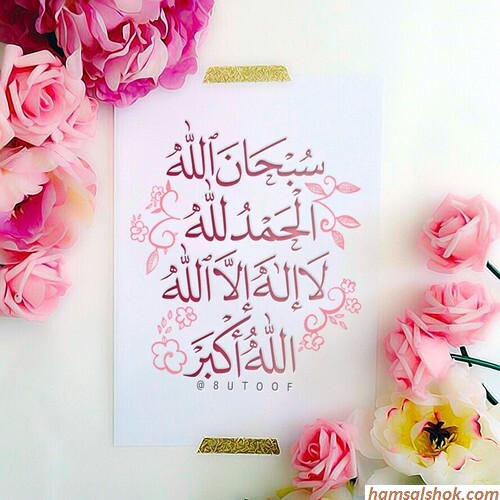 سُبْحَانَ ٱللَّهِ
الْحَمْدُ لِلَّهِ
لَا إِلَٰهَ إِلَّا ٱللَّهُ
اللَّهُ أَكْبَرُ
@8UTOOF
hamsalshok.com